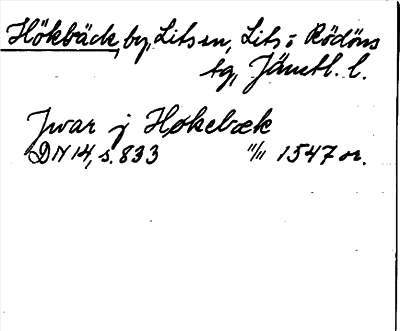 Hökbäck, by, Lits sn, Lits o Rödöns
tg, Jämtl. l.
Jwar j Høkebæk
DN 14, s. 833 11/11 1547 or.